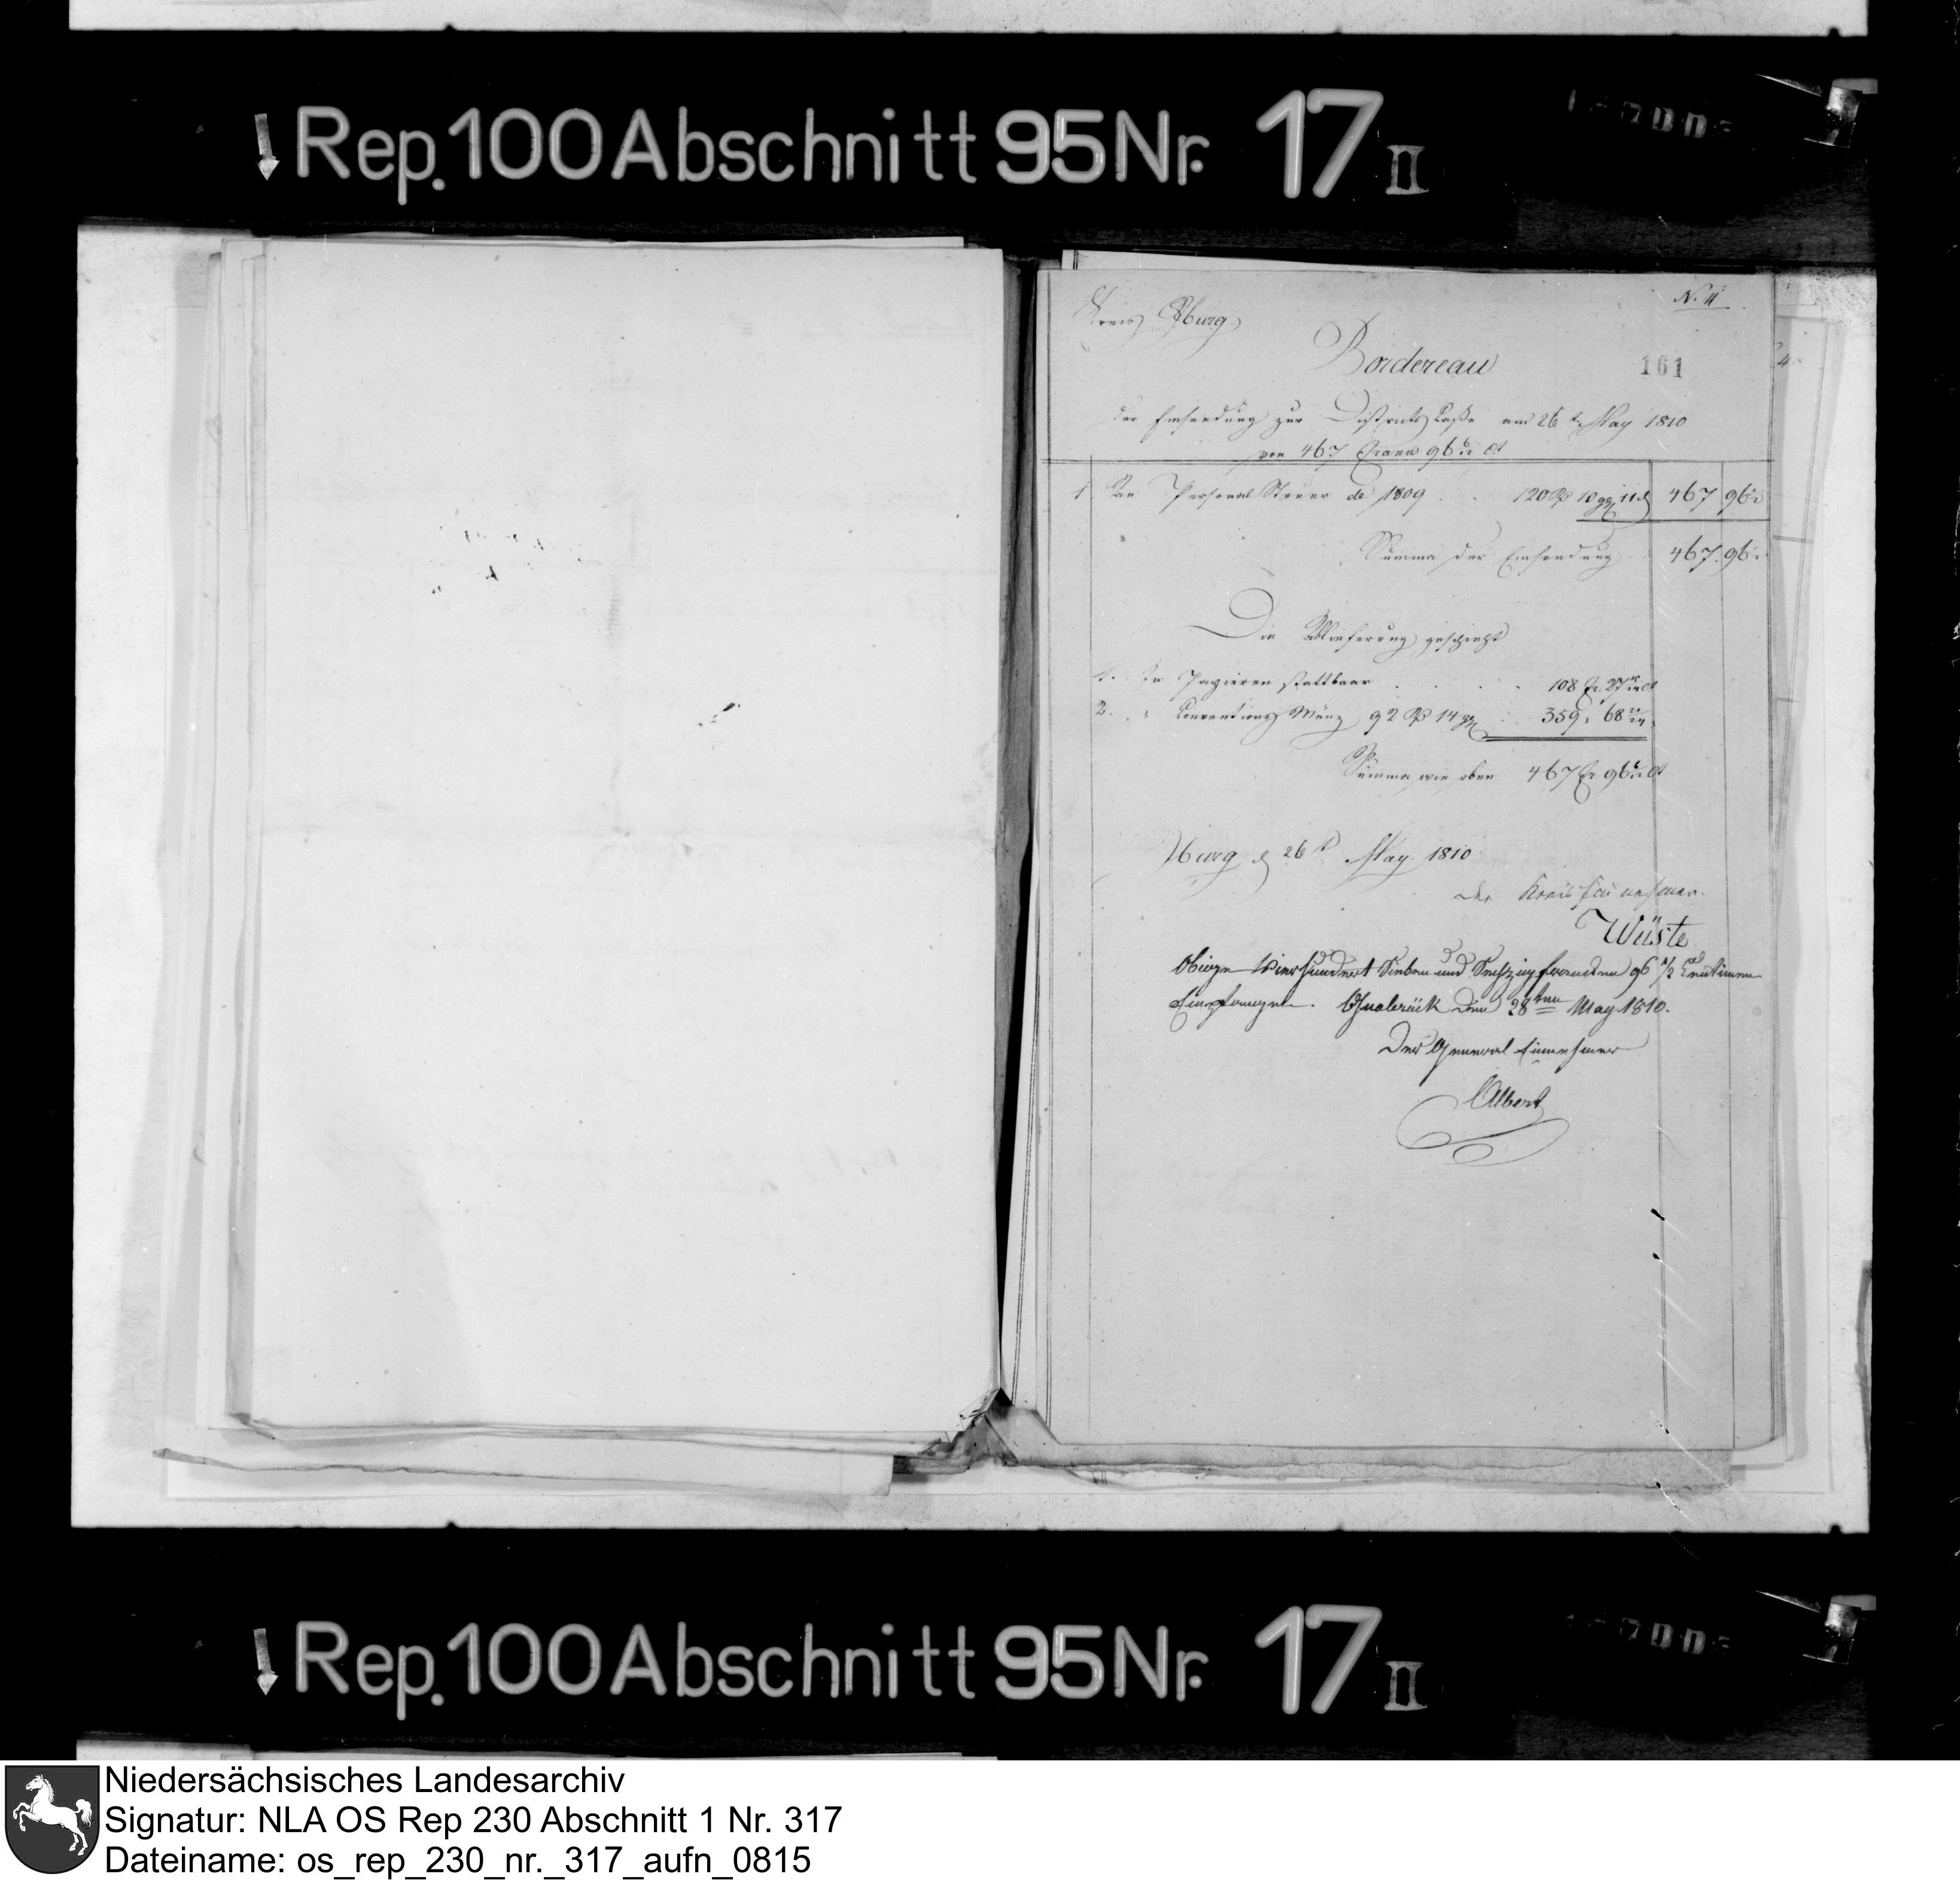 Rep. 100 Abschnitt 95 Nr. 17 II
N. 11
Kreis Iburg
Bordereau
161
der Einsendung zur Districts Casse am 26 t. May 1810
von 467 Franc 96 Ct
1. An Personal Steuer de 1809 . . 120 Rthlr 10 ggr 11 d 467 96
Summa der Einsendung 467. 96
Die Ablieferung geschieht
1. In Papieren stattbaar . . . . 108 Fr. 27 Ct
2. " Conventions Münz 92 Rthlr 14 ggr 359 " 68
Summa wie oben 467 Fr. 96 Ct
Iburg d 26 t May 1810
Der Kreis Einnehmer
Wüste
Obige Vierhundert Sieben und Sechzig francken 96 1/2 Centimen
Empfangen. Osnabrück den 28ten May 1810.
Der General Einnehmer
Albert
Rep. 100 Abschnitt 95 Nr. 17 II
Niedersächsisches Landesarchiv
Signatur: NLA OS Rep 230 Abschnitt 1 Nr. 317
Dateiname: os_rep_230_nr._317_aufn_0815